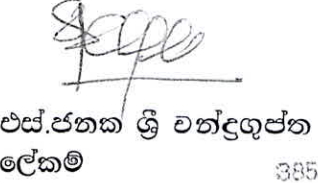 එස්.ජනක ශ්‍රී චන්ද්‍රගුප්ත
ලේකම්
385